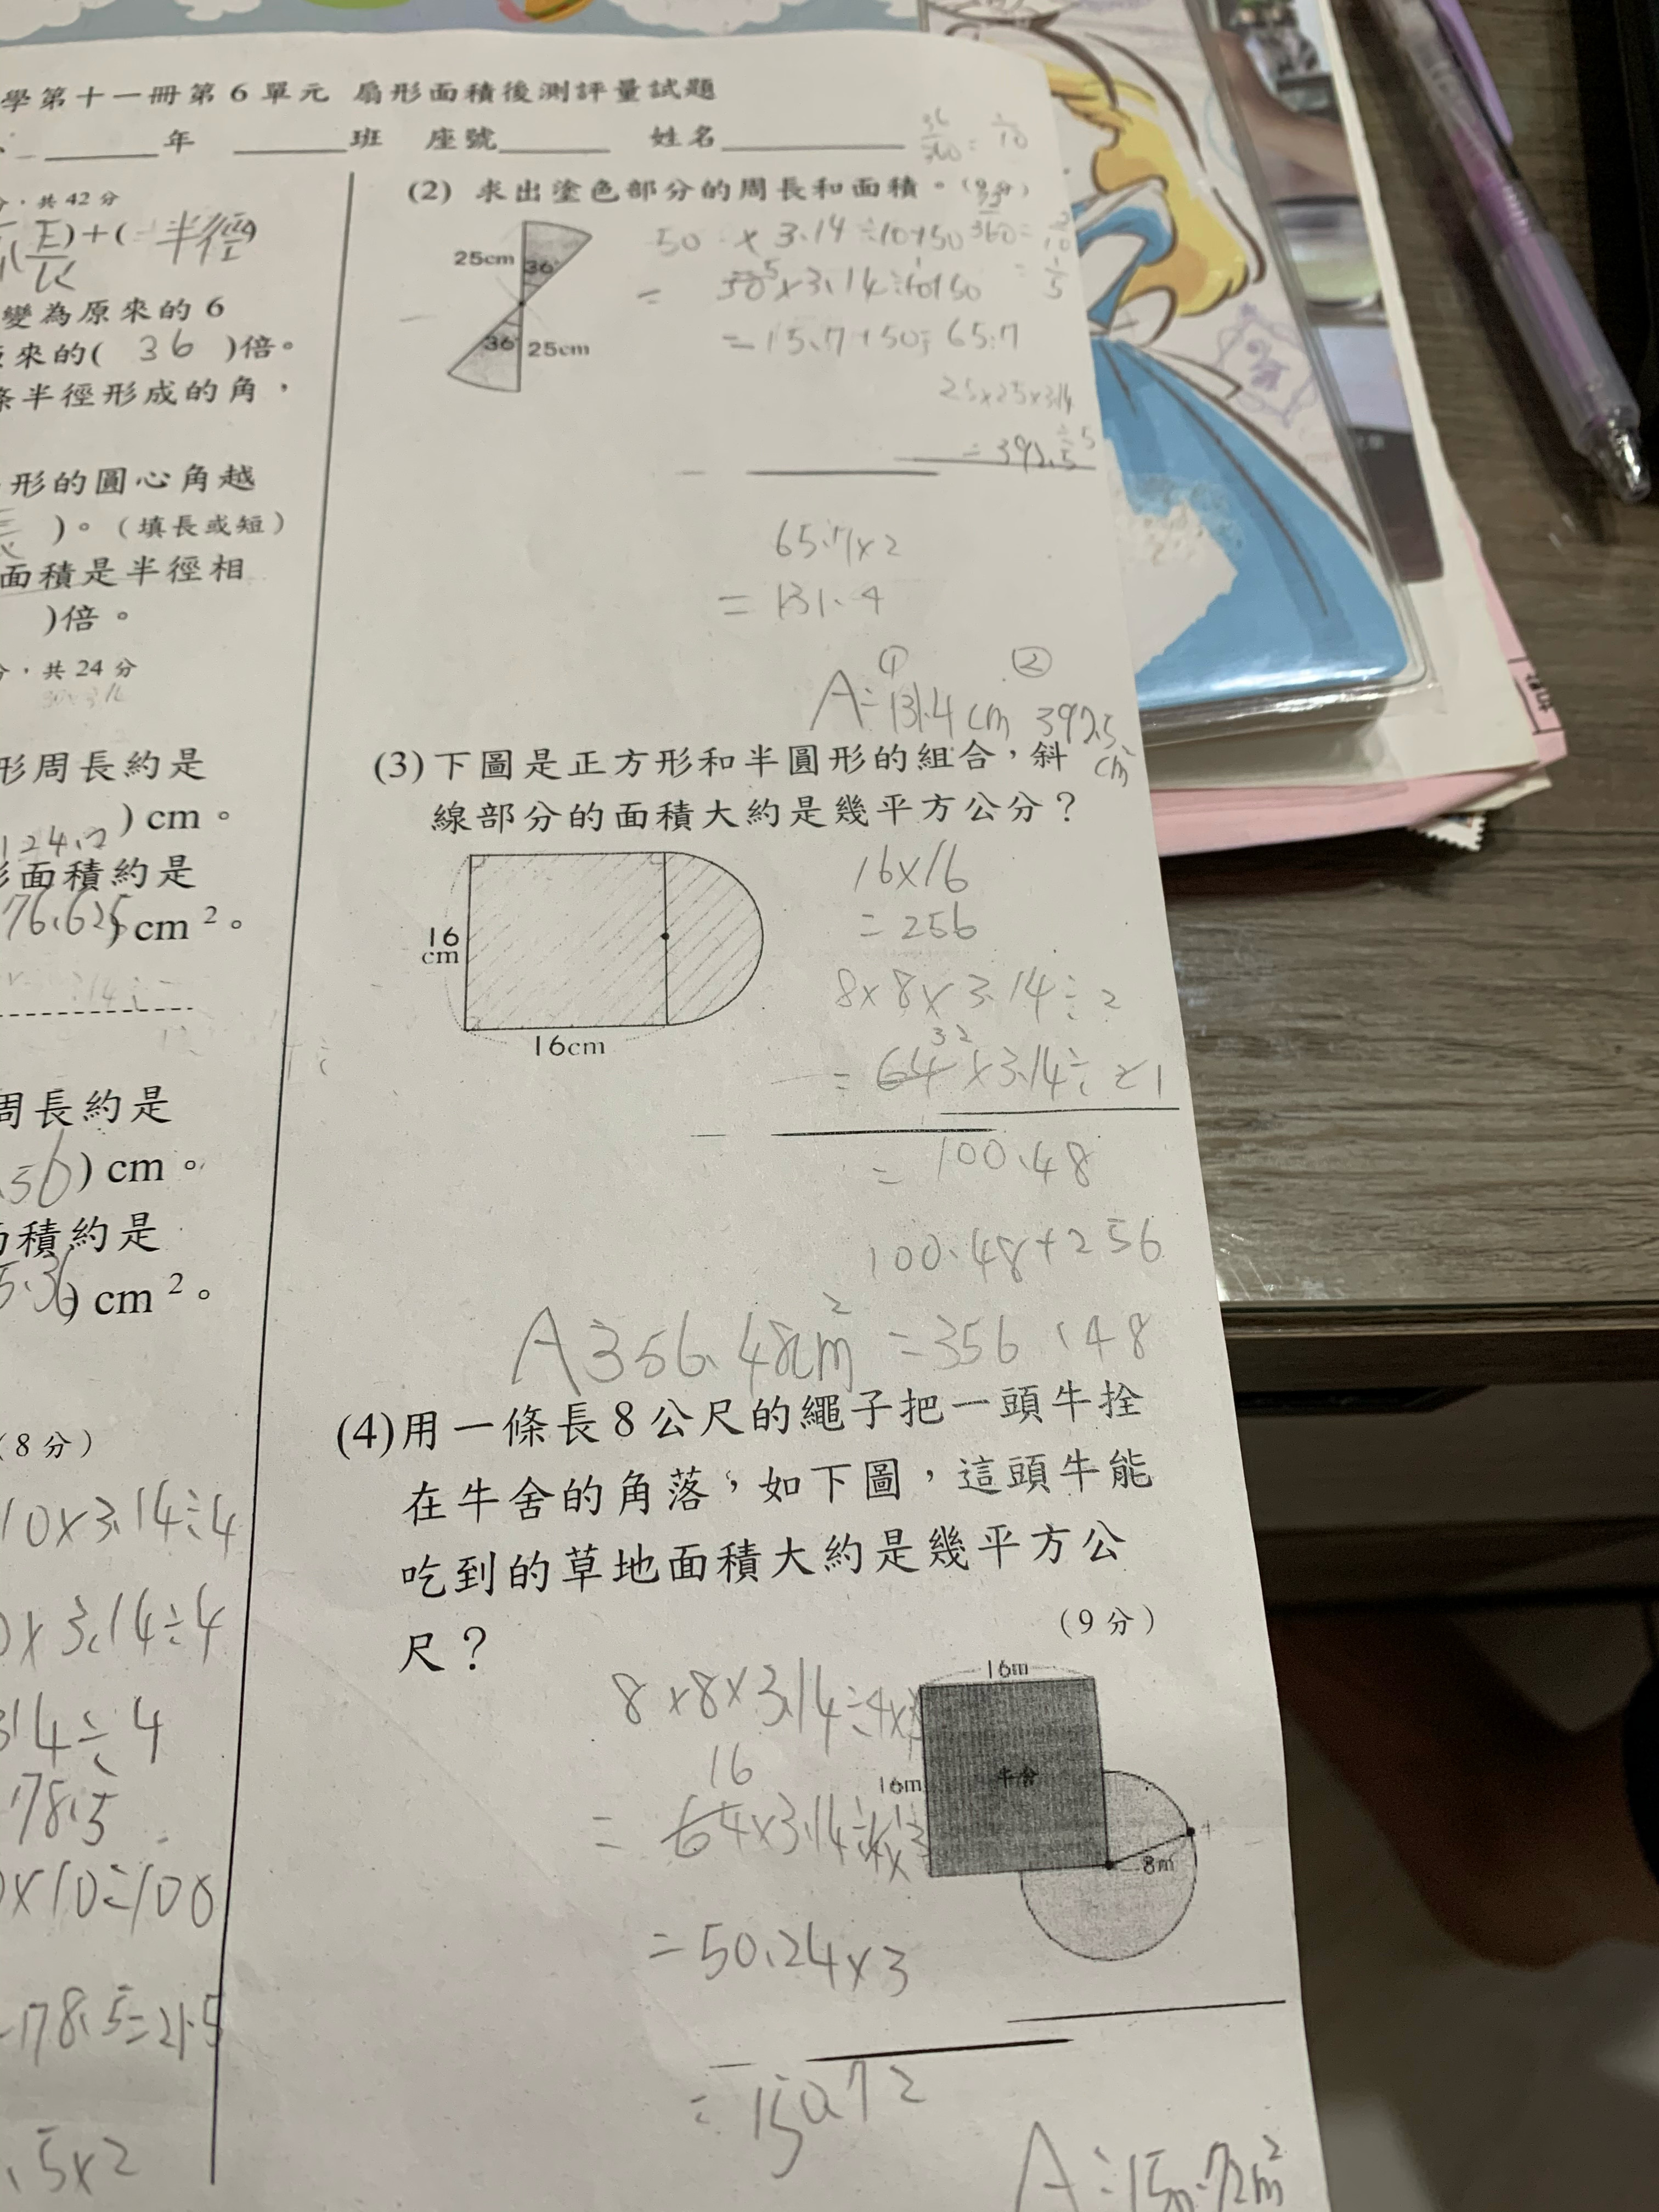 學第十一冊第6單元 扇形面積後測評量試題
年 班 座號 姓名
36/360 = 1/10
分,共42分
長)+( 半徑
變為原來的6
來的( 36 )倍。
條半徑形成的角,
形的圓心角越
)。(填長或短)
面積是半徑相
)倍。
分,共24分
形周長約是
124.2 ) cm。
形面積約是
76.625) cm²。
周長約是
.56) cm。
面積約是
5.36) cm²。
(8分)
10×3.14÷4
0×3.14÷4
314÷4
178.5
0×10=100
-178.5=21.5
.5×2
(2) 求出塗色部分的周長和面積。
25cm
36°
36°
25cm
50×3.14÷10+50
= 50×3.14÷10+50
5
=15.7+50=65.7
25×25×3.14
÷5
=392.5
65.7×2
=131.4
① ②
A=131.4cm 392.5
cm²
(3)下圖是正方形和半圓形的組合,斜
線部分的面積大約是幾平方公分?
16
cm
16cm
16×16
=256
8×8×3.14÷2
32
=64×3.14÷2 1
=100.48
100.48+256
A356.48cm² =356.48
(4)用一條長8公尺的繩子把一頭牛拴
在牛舍的角落,如下圖,這頭牛能
吃到的草地面積大約是幾平方公
尺?
(9分)
16m
16m
牛舍
8m
8×8×3.14÷4×
16
= 64×3.14÷4×3
=50.24×3
=150.72
A=150.72m²